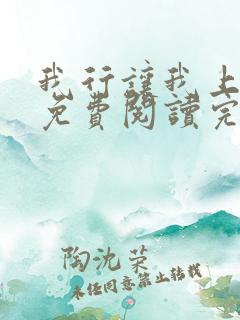 我行讓我上
免費閱讀完
陶沈荣
未经同意禁止转载